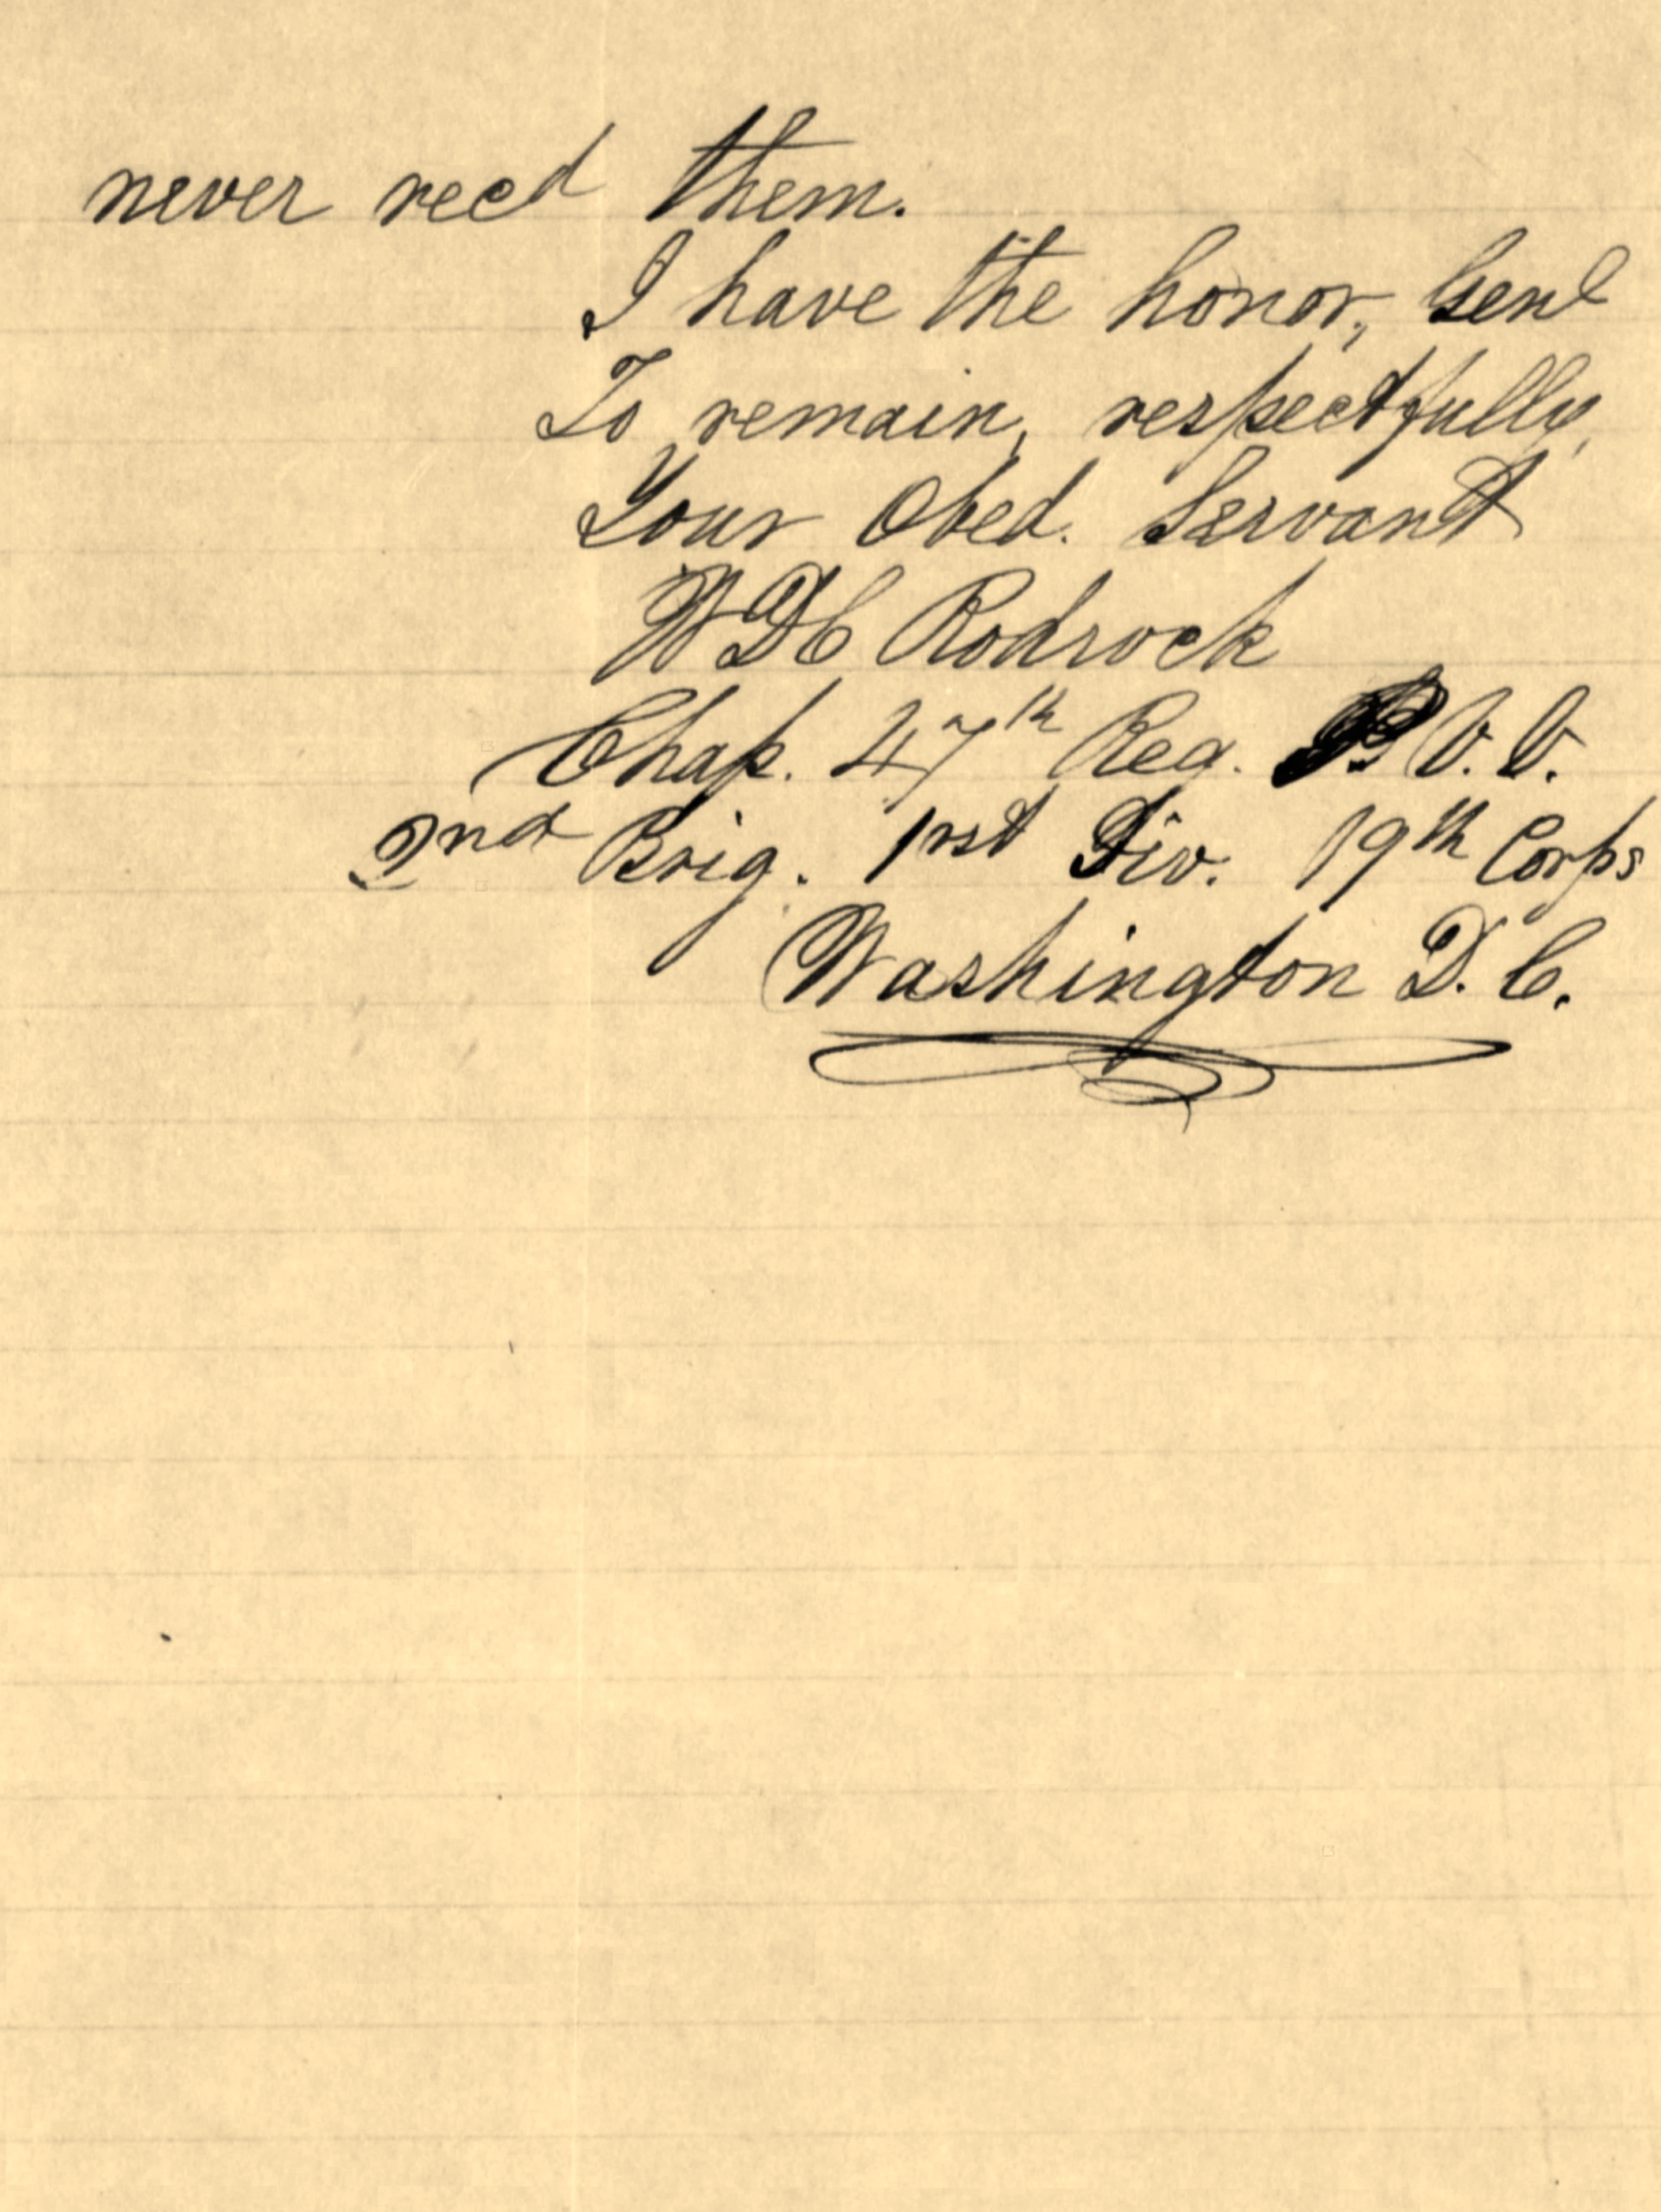 never recd them.
I have the honor, Genl
To remain, respectfully,
Your Obed. Servant
W D C Rodrock
Chap. 47th Reg. P V. V.
2nd Brig. 1rst Div. 19th Corps
Washington D. C.